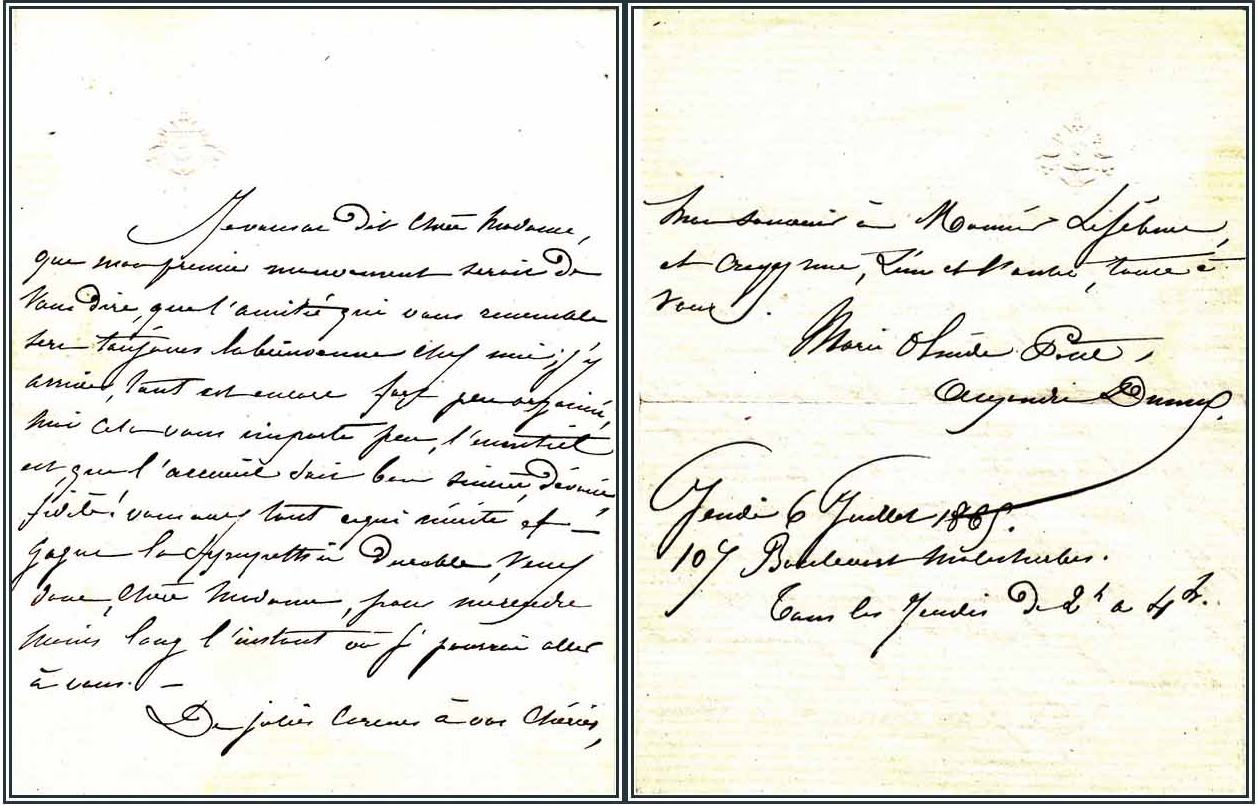 Je vous ai dit Chère Madame,
que mon premier mouvement serait de
vous dire, que l'amitié qui vous ressemble
sera toujours la bienvenue chez moi; j'y
arrive, tout est encore fort peu organisé,
mais cela vous importe peu, l'essentiel
est, que l'accueil soit bon sincère, dévoué
fidèle! vous avez tout ce qui mérite et
gagne la sympathie durable, Venez
donc, Chère Madame, pour me rendre
moins long l'instant où je pourrai aller
à vous. —
De jolies à vos Chéries,
mon souvenir à Monsieur Lefebvre,
et croyez moi, l'un et l'autre, toute à
vous.
Marie
Alexandre Dumas.
Jeudi 6 Juillet 1865.
107 Boulevart Malesherbes.
Tous les Jeudis de 2h a 4h.